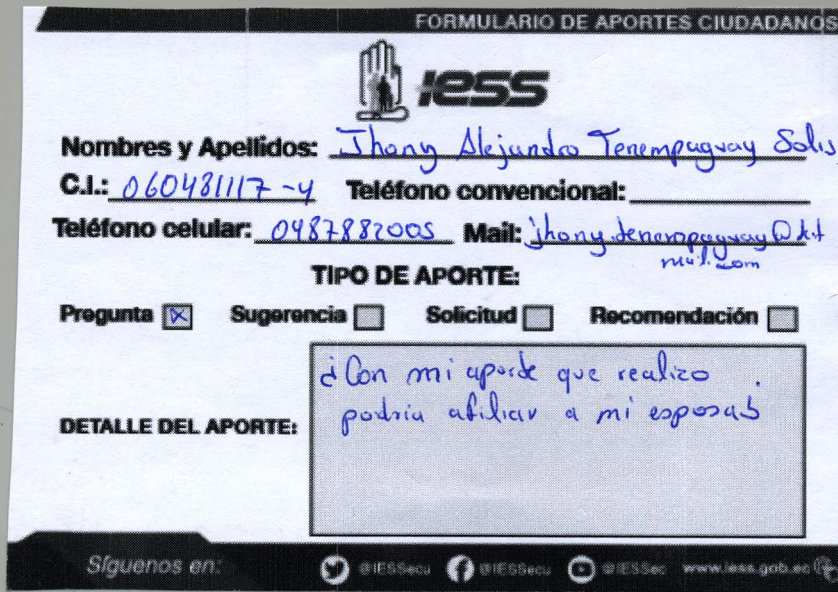 FORMULARIO DE APORTES CIUDADANOS
IESS
Nombres y Apellidos: Jhony Alejandro Tenempaguay Solis
C.I.: 060481117-4 Teléfono convencional:
Teléfono celular: 0987882005 Mail: jhony.tenempaguay@hot
mail.com
TIPO DE APORTE:
Pregunta x Sugerencia Solicitud Recomendación
DETALLE DEL APORTE:
¿Con mi aporte que realizo
podria afiliar a mi esposa?
Síguenos en: @IESSecu @IESSecu @IESSec www.iess.gob.ec